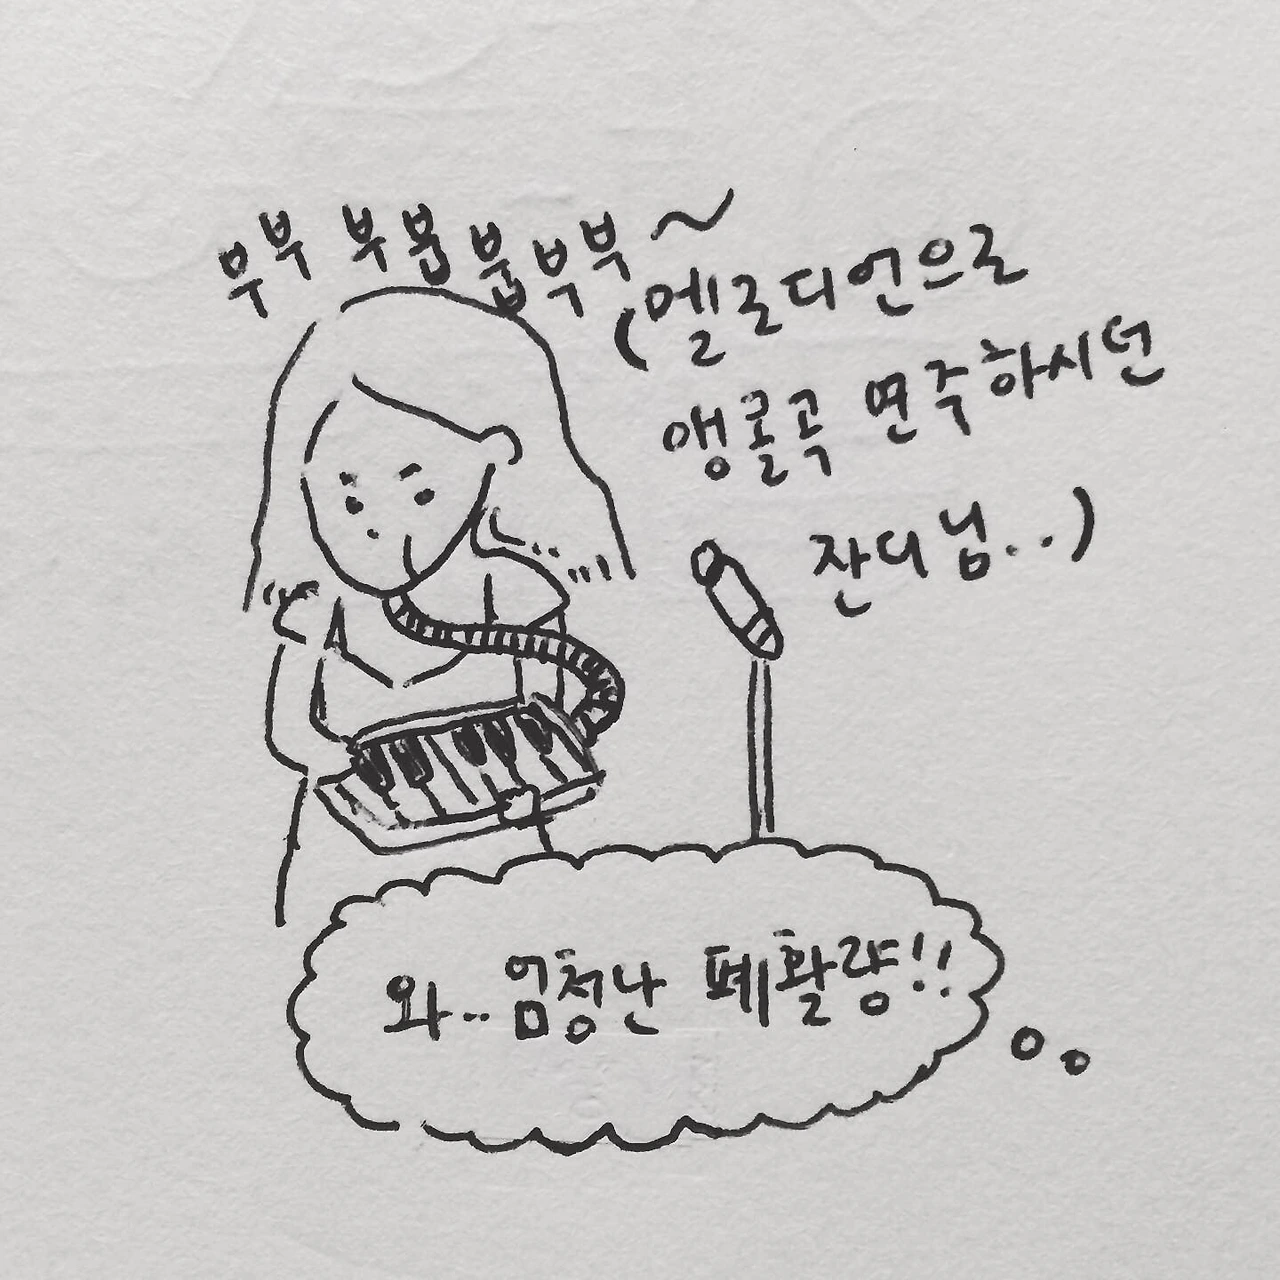 부부 부붐 붑부부~
(멜로디언으로
앵콜곡 연주하시던
잔디님..)
와.. 엄청난 폐활량!!